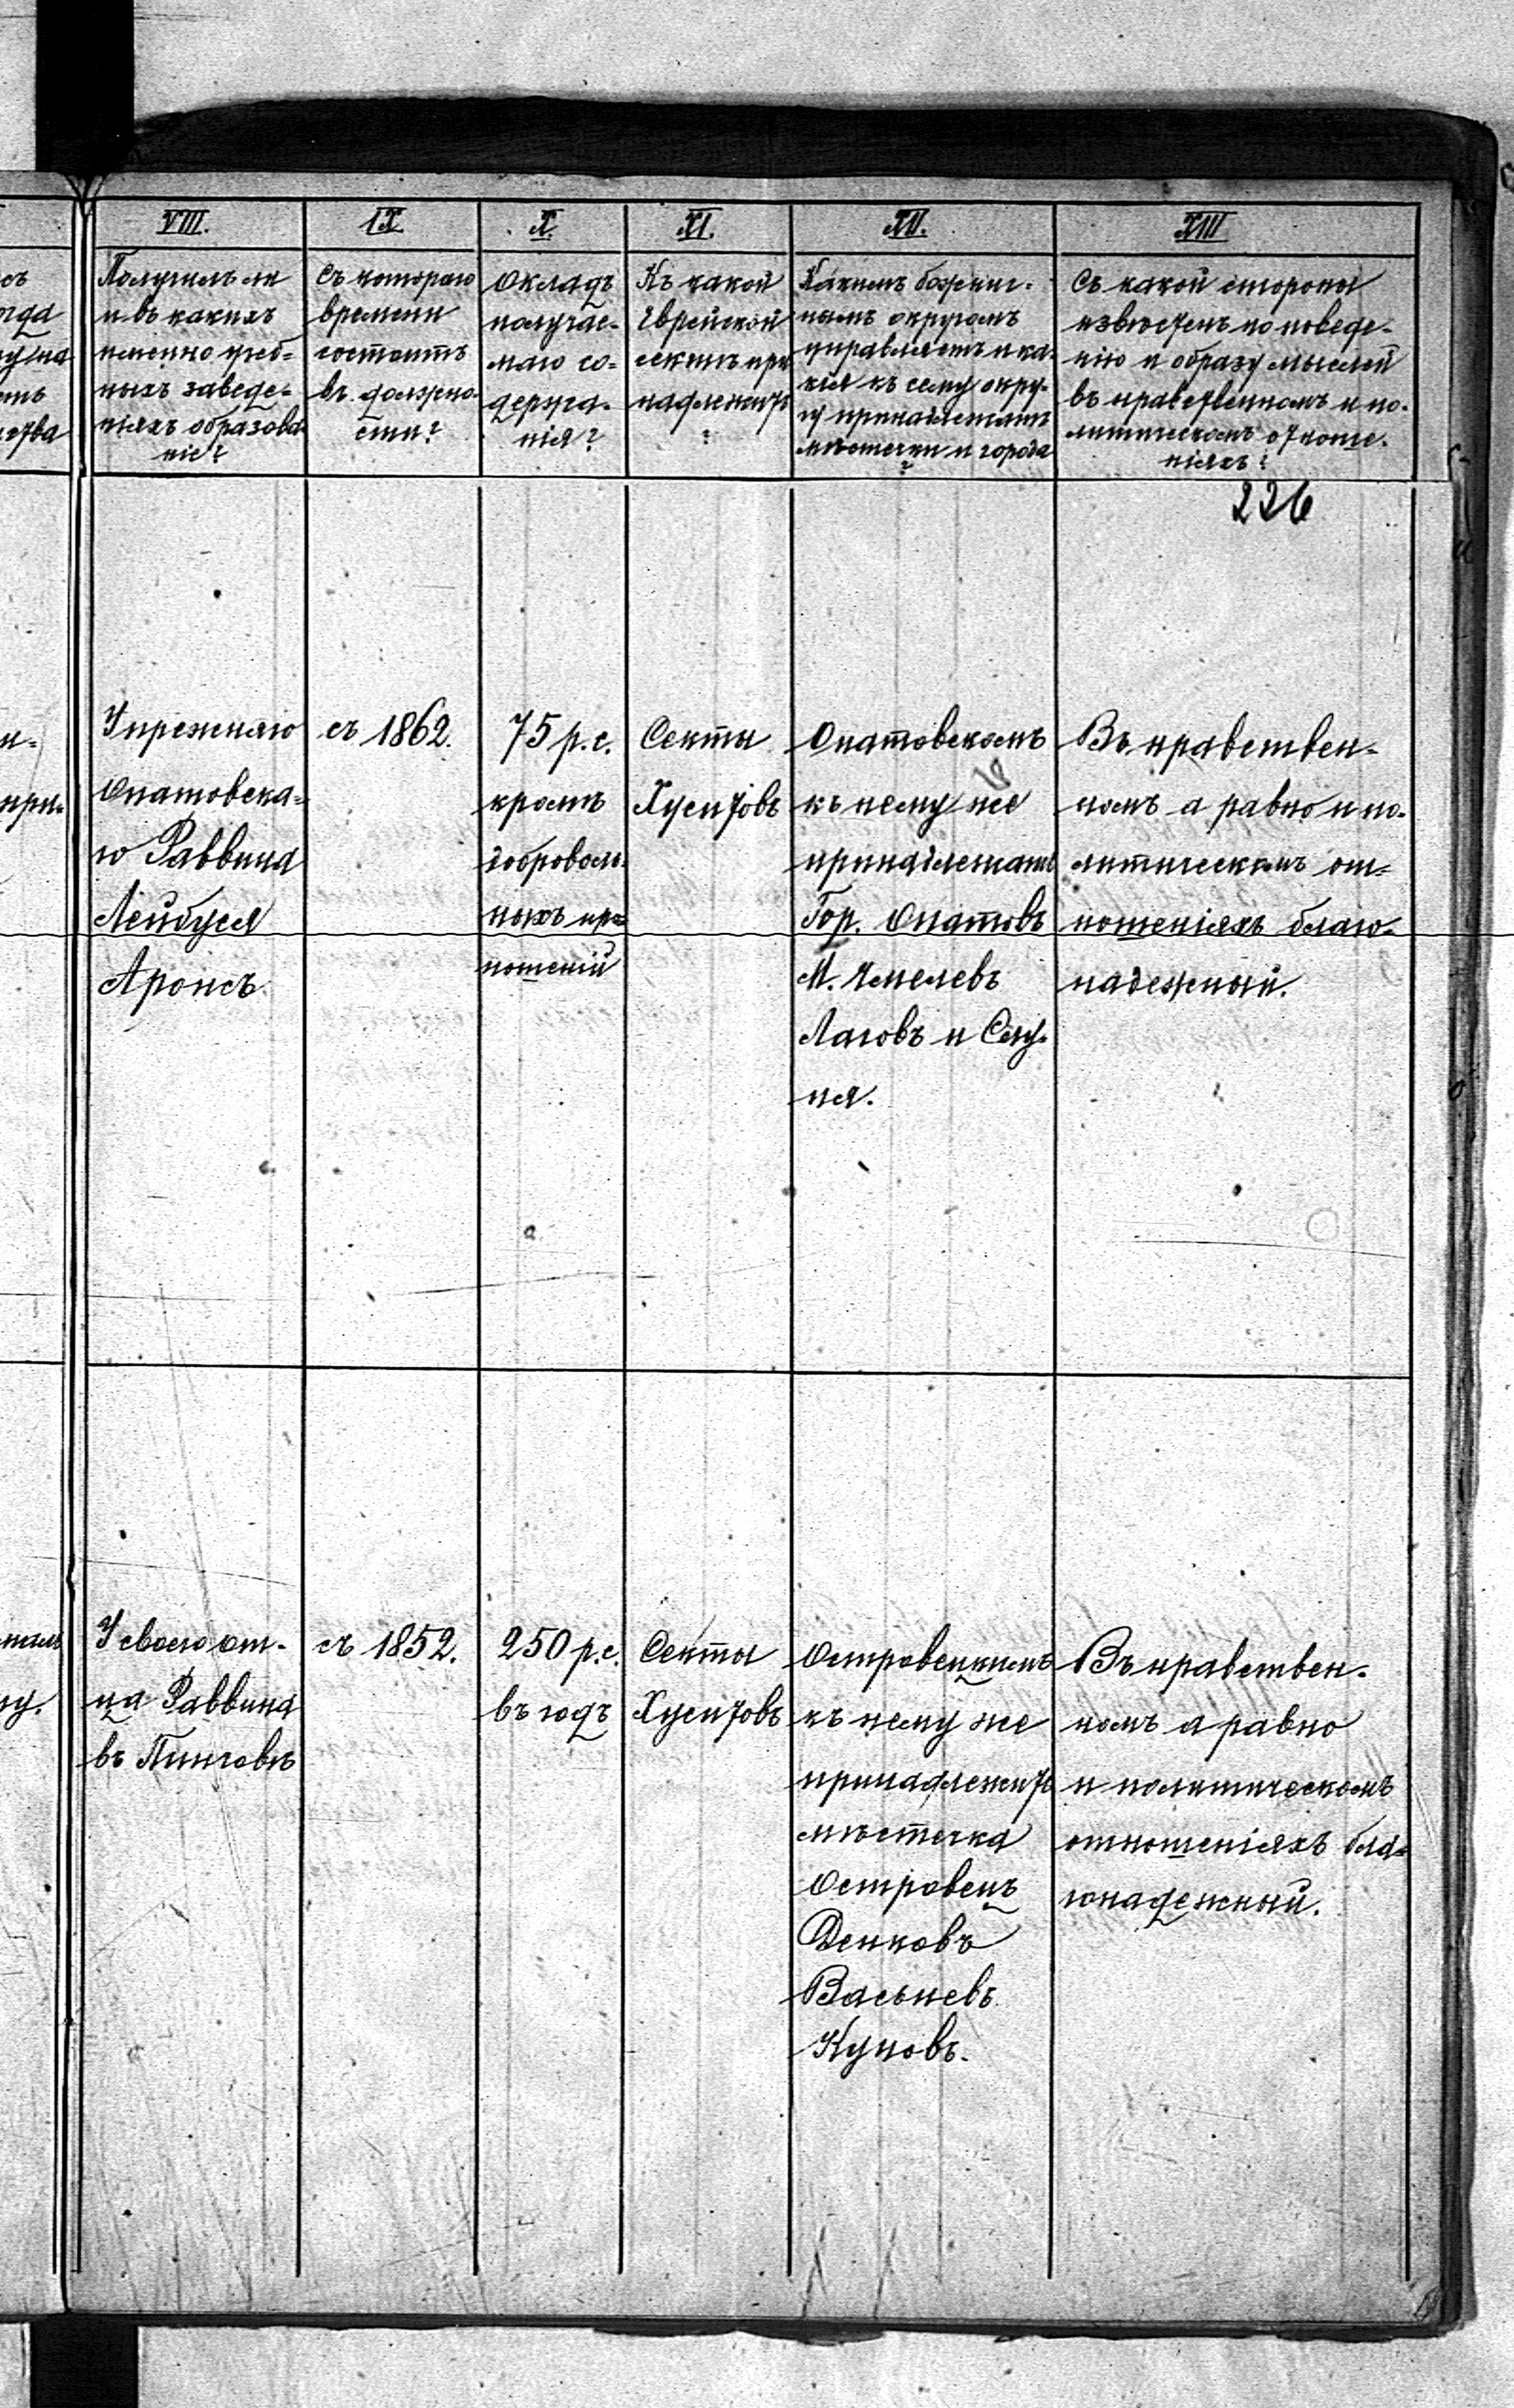 VIII.
Получилъ ли
и въ какихъ
именно учеб-
ныхъ заведе-
ніяхъ образова
ніе?
IX
Съ котораго
времени
состоитъ
въ должно-
сти?
X.
Окладъ
получае-
маго со-
держа-
нія?
XI.
Къ какой
Еврейской
сектѣ при
надлежитъ
?
XII.
Какимъ божнич-
нымъ округомъ
управляетъ и ка-
кія къ сему окру-
гу принадлежатъ
мѣстечки и города
?
XIII
Съ какой стороны
извѣстенъ по поведе-
нію и образу мыслей
въ нравственномъ и по-
литическомъ отноше-
ніяхъ?
226
У прежняго
Опатовска-
го Раввина
Лейбуся
Аронсъ
съ 1862.
75 р. с.
кромѣ
доброволь-
ныхъ при-
ношеній
Секты
Хуситовъ
Опатовскомъ
къ нему же
принадлежатъ
Гор. Опатовъ
М. Ивмелевъ
Лаговъ и Слу-
пя.
Въ нравствен-
номъ а равно и по-
литическомъ от-
ношеніяхъ благо-
надежный.
У своего от-
ца Раввина
въ Пинчовѣ
съ 1852.
250 р. с.
въ годъ
Секты
Хуситовъ
Островецкимъ
къ нему же
принадлежитъ
мѣстечка
Островецъ
Денковъ
Васьневъ
Куновъ.
Въ нравствен-
номъ а равно
и политическомъ
отношеніяхъ бла-
гонадежный.